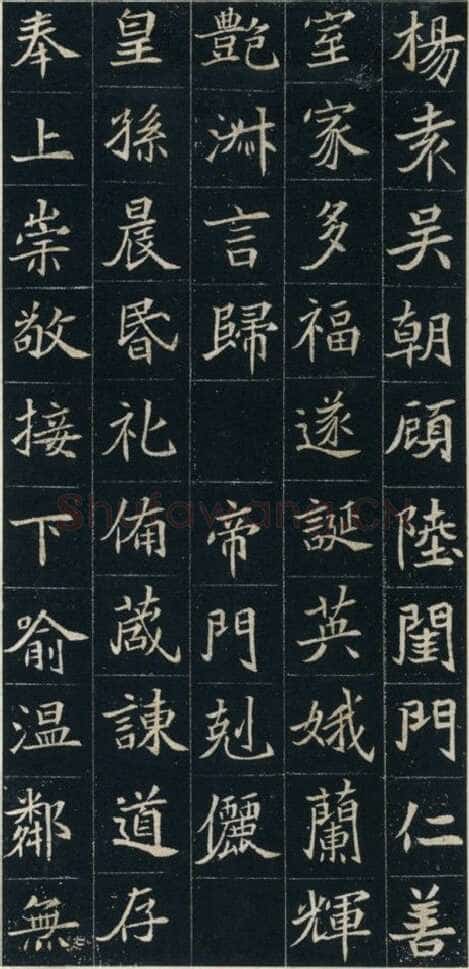 楊袁吳朝顧陸閨門仁善
室家多福遂誕英娥蘭輝
艷淑言歸 帝門剋儷
皇孫晨昬礼備葴諫道存
奉上崇敬接下喻温鄰無
Shufawang.CN